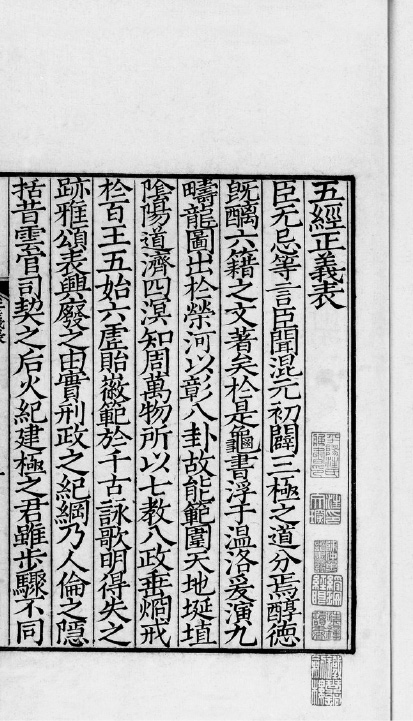 五經正義表
臣无忌等言臣聞混元初闢三極之道分焉醇德
既醨六籍之文著矣於是龜書浮于温洛爰演九
疇龍圖出於榮河以彰八卦故能範圍天地埏埴
隂陽道濟四溟知周萬物所以七教八政垂烱戒
於百王五始六虚貽徽範於千古詠歌明得失之
跡雅頌表興廢之由實刑政之紀綱乃人倫之隱
括昔雲官司契之后火紀建極之君雖步驟不同